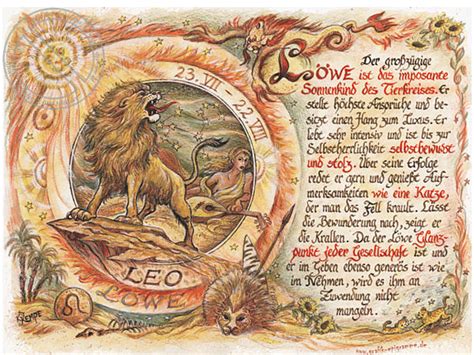 23. VII - 22. VIII
LEO
LÖWE
Der großzügige
LÖWE ist das imposante
Sonnenkind des Tierkreises. Er
stellt höchste Ansprüche und be-
sitzt einen Hang zum Luxus. Er
lebt sehr intensiv und ist bis zur
Selbstherrlichkeit selbstbewusst
und stolz. Über seine Erfolge
redet er gern und genießt Auf-
merksamkeiten wie eine Katze,
der man das Fell krault. Lässt
die Bewunderung nach, zeigt er
die Krallen. Da der Löwe Glanz-
punkt jeder Gesellschaft ist und
er im Geben ebenso generös ist wie
im Nehmen, wird es ihm an
Zuwendung nicht
mangeln.